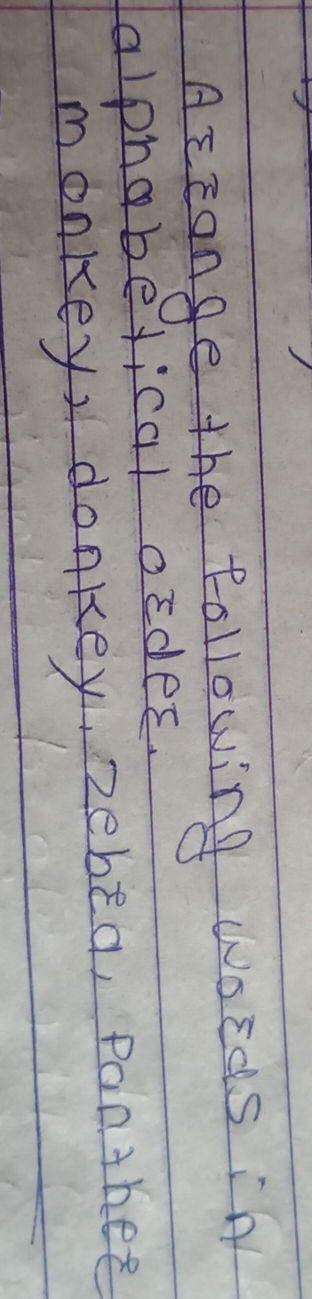 Arrange the following words in
alphabetical order.
monkey, donkey, zebra, Panther